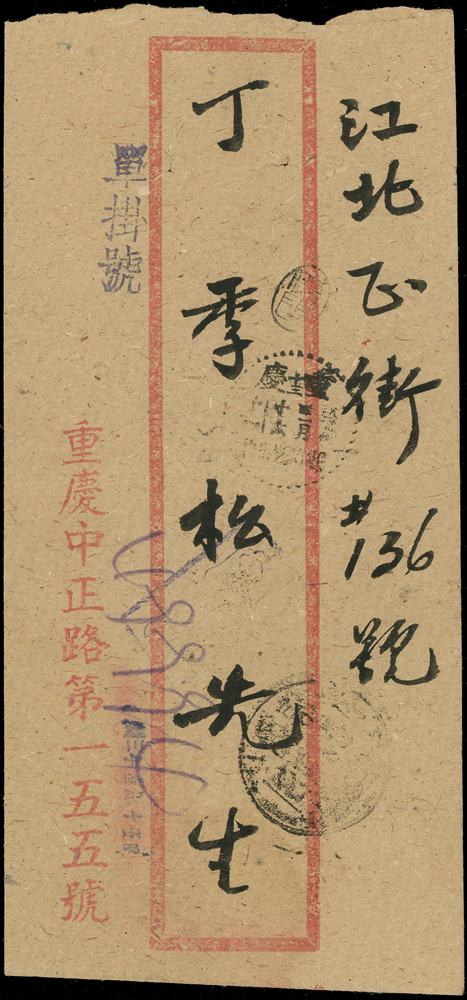 江北正街#136號
丁季松先生
單掛號
重慶中正路第一五五號
重慶